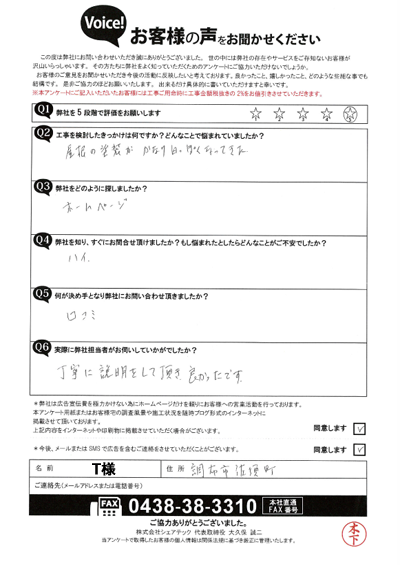 Voice!
お客様の声をお聞かせください
この度は弊社にお問い合わせいただき誠にありがとうございました。世の中には弊社の存在やサービスをご存知ないお客様が
沢山いらっしゃいます。その方たちに弊社をよく知っていただくためのアンケートにご協力いただけないでしょうか。
お客様のご意見をお聞かせいただき今後の活動に反映したいと考えております。良かったこと、嬉しかったこと、どのような些細な事でも
結構です。是非ご協力のほどお願いいたします。出来るだけ具体的に書いていただけますと幸いです。
※本アンケートにご記入いただいたお客様には工事ご用命時に工事金額税抜きの2%をお値引きさせていただきます。
Q1 弊社を5段階で評価をお願いします ☆ ☆ ☆ ☆ ☆
Q2 工事を検討したきっかけは何ですか?どんなことで悩まれていましたか?
屋根の塗装が かなり白っぽくなってきた
Q3 弊社をどのように探しましたか?
ホームページ
Q4 弊社を知り、すぐにお問合せ頂けましたか?もし悩まれたとしたらどんなことがご不安でしたか?
ハイ、
Q5 何が決め手となり弊社にお問い合わせ頂きましたか?
口コミ
Q6 実際に弊社担当者がお伺いしていかがでしたか?
丁寧に説明をして頂き良かったです。
*弊社は広告宣伝費を極力かけない為にホームページだけを頼りにお客様への営業活動を行っております。
本アンケート用紙またはお客様宅の調査風景や施工状況を随時ブログ形式のインターネットに
掲載させて頂いております。
上記内容をインターネットや印刷物に掲載させていただく場合がございます。 同意します ✓
*今後、メールまたは SMS で広告を含むご連絡をさせていただくことがございます。 同意します ✓
名前 T様 住所 調布市佐須町
ご連絡先(メールアドレスまたは電話番号)
FAX 0438-38-3310 本社直通 FAX番号
ご協力ありがとうございました。
株式会社シェアテック 代表取締役 大久保 誠二
当アンケートで取得したお客様の個人情報は関係法規に基づき厳正に管理いたします。
木下